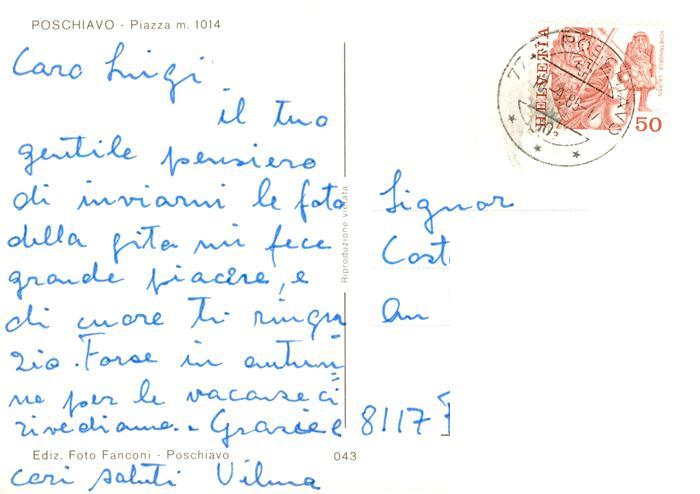 POSCHIAVO - Piazza m. 1014
Caro Luigi
il tuo
gentile pensiero
di inviarmi le foto
della gita mi fece
grande piacere, e
di cuore ti ringra
zio. Forse in autun=
no per le vacanze ci
rivediamo. - Grazie e
cari saluti Vilma
Ediz. Foto Fanconi - Poschiavo
043
Riproduzione vietata
Signor
Cost
8117
HELVETIA
50
POSCHIAVO